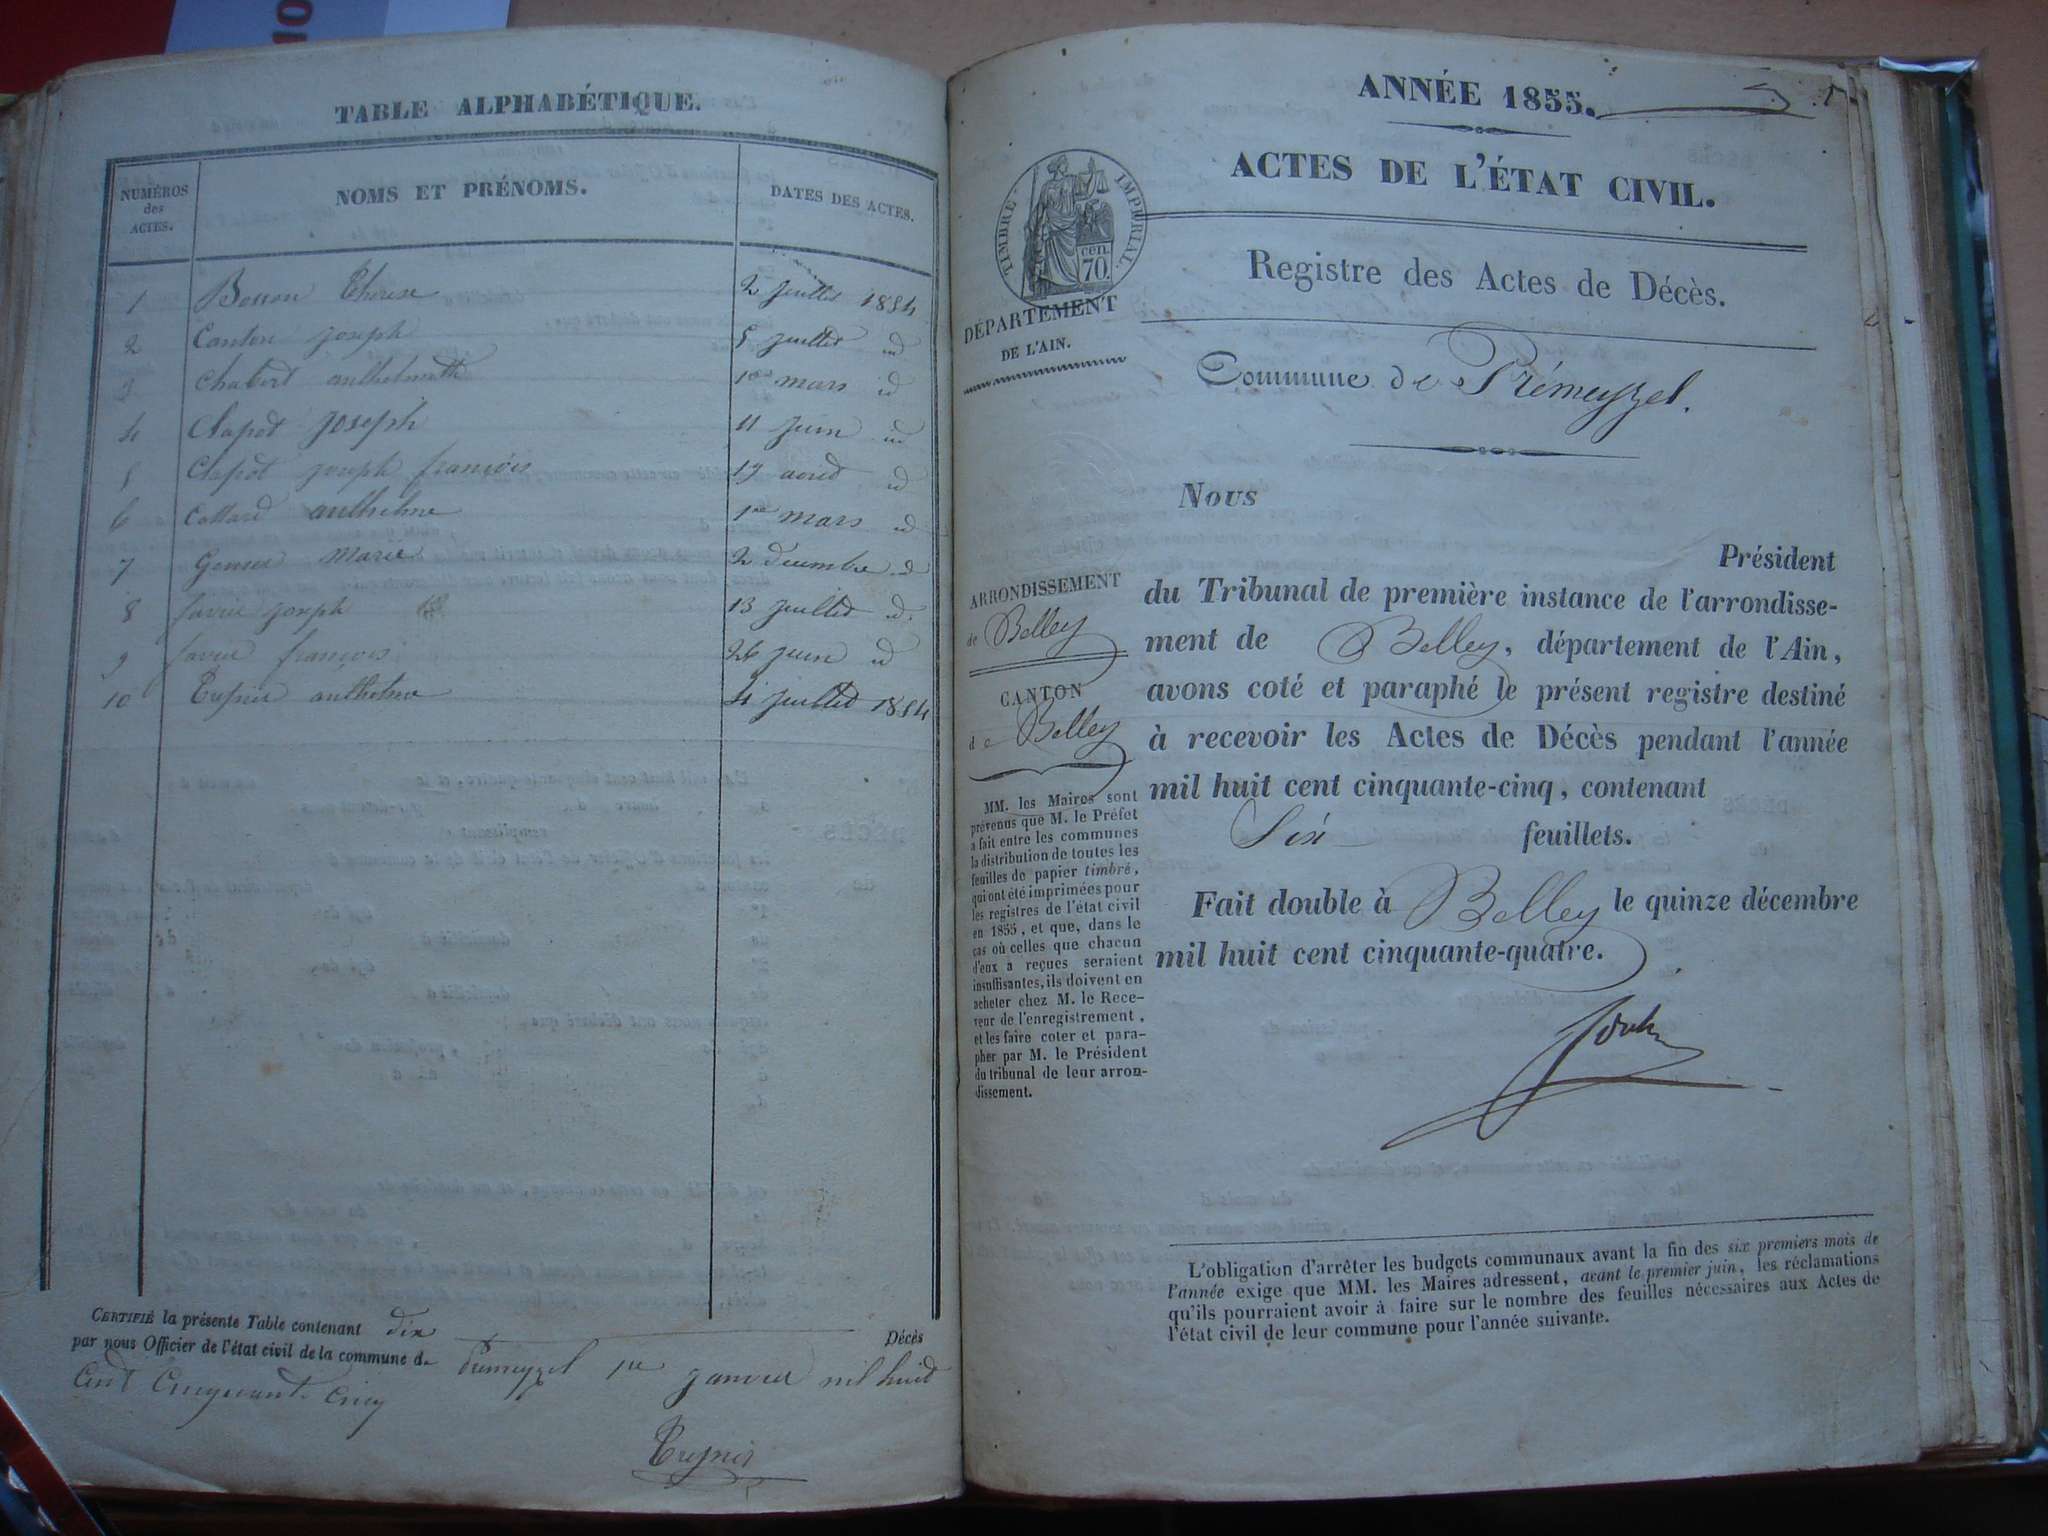 TABLE ALPHABÉTIQUE.
NUMÉROS
des
ACTES.
NOMS ET PRÉNOMS.
DATES DES ACTES.
1 Therese 2 juillet 1854
2 Canton joseph 5 juillet id
3 Chabert anthelmette 1er mars id
4 Clapot joseph 11 juin id
5 Clapot joseph françois 19 id
6 Collard anthelme 1er mars id
7 marie 2 décembre id
8 joseph 13 juillet id
9 françois 26 juin id
10 anthelme 4 juillet 1854
CERTIFIÉ la présente Table contenant dix Décès
par nous Officier de l'état civil de la commune de Premeyzel 1er janvier mil huit
cent cinquante cinq
ANNÉE 1855.
ACTES DE L'ÉTAT CIVIL.
TIMBRE IMPÉRIAL.
cen.
70.
Registre des Actes de Décès.
DÉPARTEMENT
DE L'AIN.
Commune de Prémeyzel.
Nous
Président
du Tribunal de première instance de l'arrondisse-
ment de Belley, département de l'Ain,
avons coté et paraphé le présent registre destiné
à recevoir les Actes de Décès pendant l'année
mil huit cent cinquante-cinq, contenant
Six feuillets.
Fait double à Belley le quinze décembre
mil huit cent cinquante-quatre.
ARRONDISSEMENT
de Belley
CANTON
de Belley
MM. les Maires sont
prévenus que M. le Préfet
a fait entre les communes
la distribution de toutes les
feuilles de papier timbré,
qui ont été imprimées pour
les registres de l'état civil
en 1855, et que, dans le
cas où celles que chacun
d'eux a reçues seraient
insuffisantes, ils doivent en
acheter chez M. le Rece-
veur de l'enregistrement,
et les faire coter et para-
pher par M. le Président
du tribunal de leur arron-
dissement.
L'obligation d'arrêter les budgets communaux avant la fin des six premiers mois de
l'année exige que MM. les Maires adressent, avant le premier juin, les réclamations
qu'ils pourraient avoir à faire sur le nombre des feuilles nécessaires aux Actes de
l'état civil de leur commune pour l'année suivante.